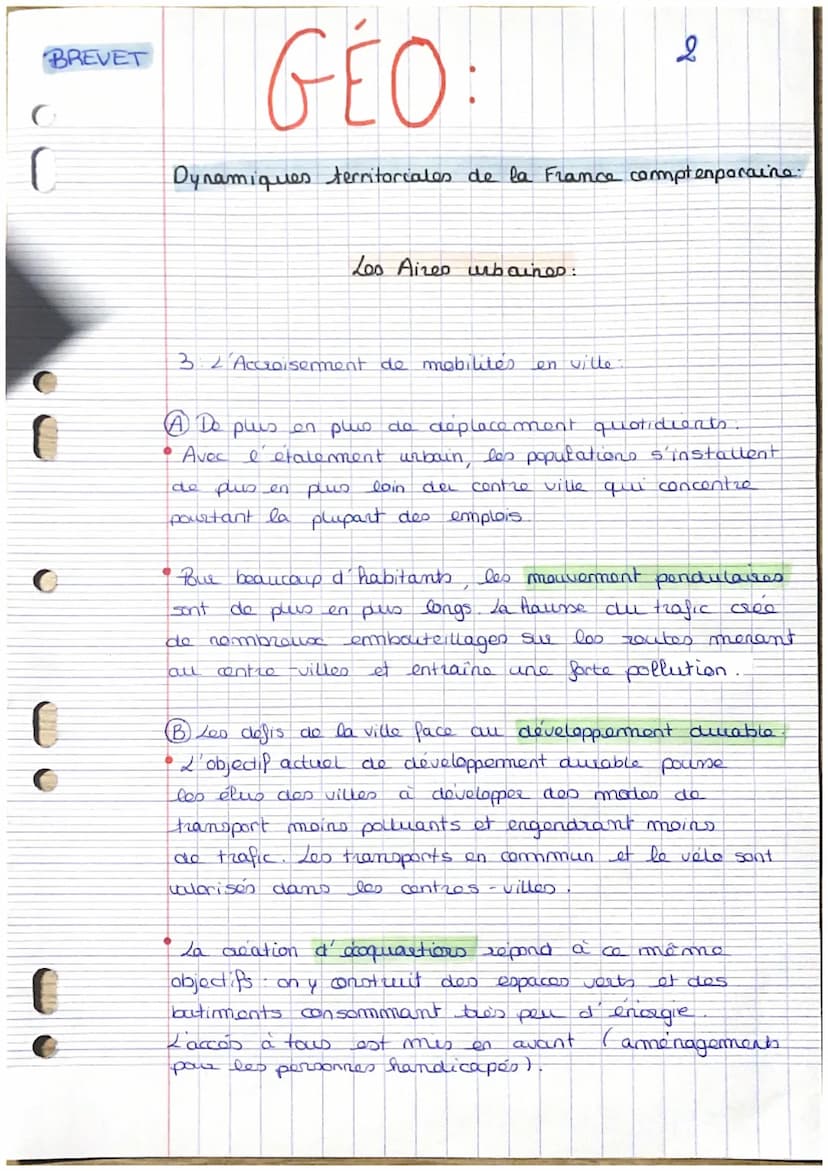 BREVET
GÉO:
2
Dynamiques territoriales de la France comptenporaine:
Les Aires urbaines:
3: L'Accroisement de mobilités en ville:
A De plus en plus de déplacement quotidients.
• Avec l'étalement urbain, les populations s'installent
de plus en plus loin der centre ville qui concentre
pourtant la plupart des emplois.
• Pour beaucoup d'habitants, les mouvement pendulaires
sont de plus en plus longs. La hausse du trafic crée
de nombreuse embouteillages sur les routes menant
au centre-villes et entraîne une forte pollution.
B Les défis de la ville face au développement durable.
• L'objectif actuel de développement durable pousse
les élus des villes à développer des modes de
transport moins polluants et engendrant moins
de trafic. Les transports en commun et le vélo sont
valorisés dans les centres-villes.
• La création d'écoquartiers répond à ce même
objectifs: on y construit des espaces verts et des
batiments consommant très peu d'énergie.
L'accès à tous est mis en avant (aménagements
pour les personnes handicapés).